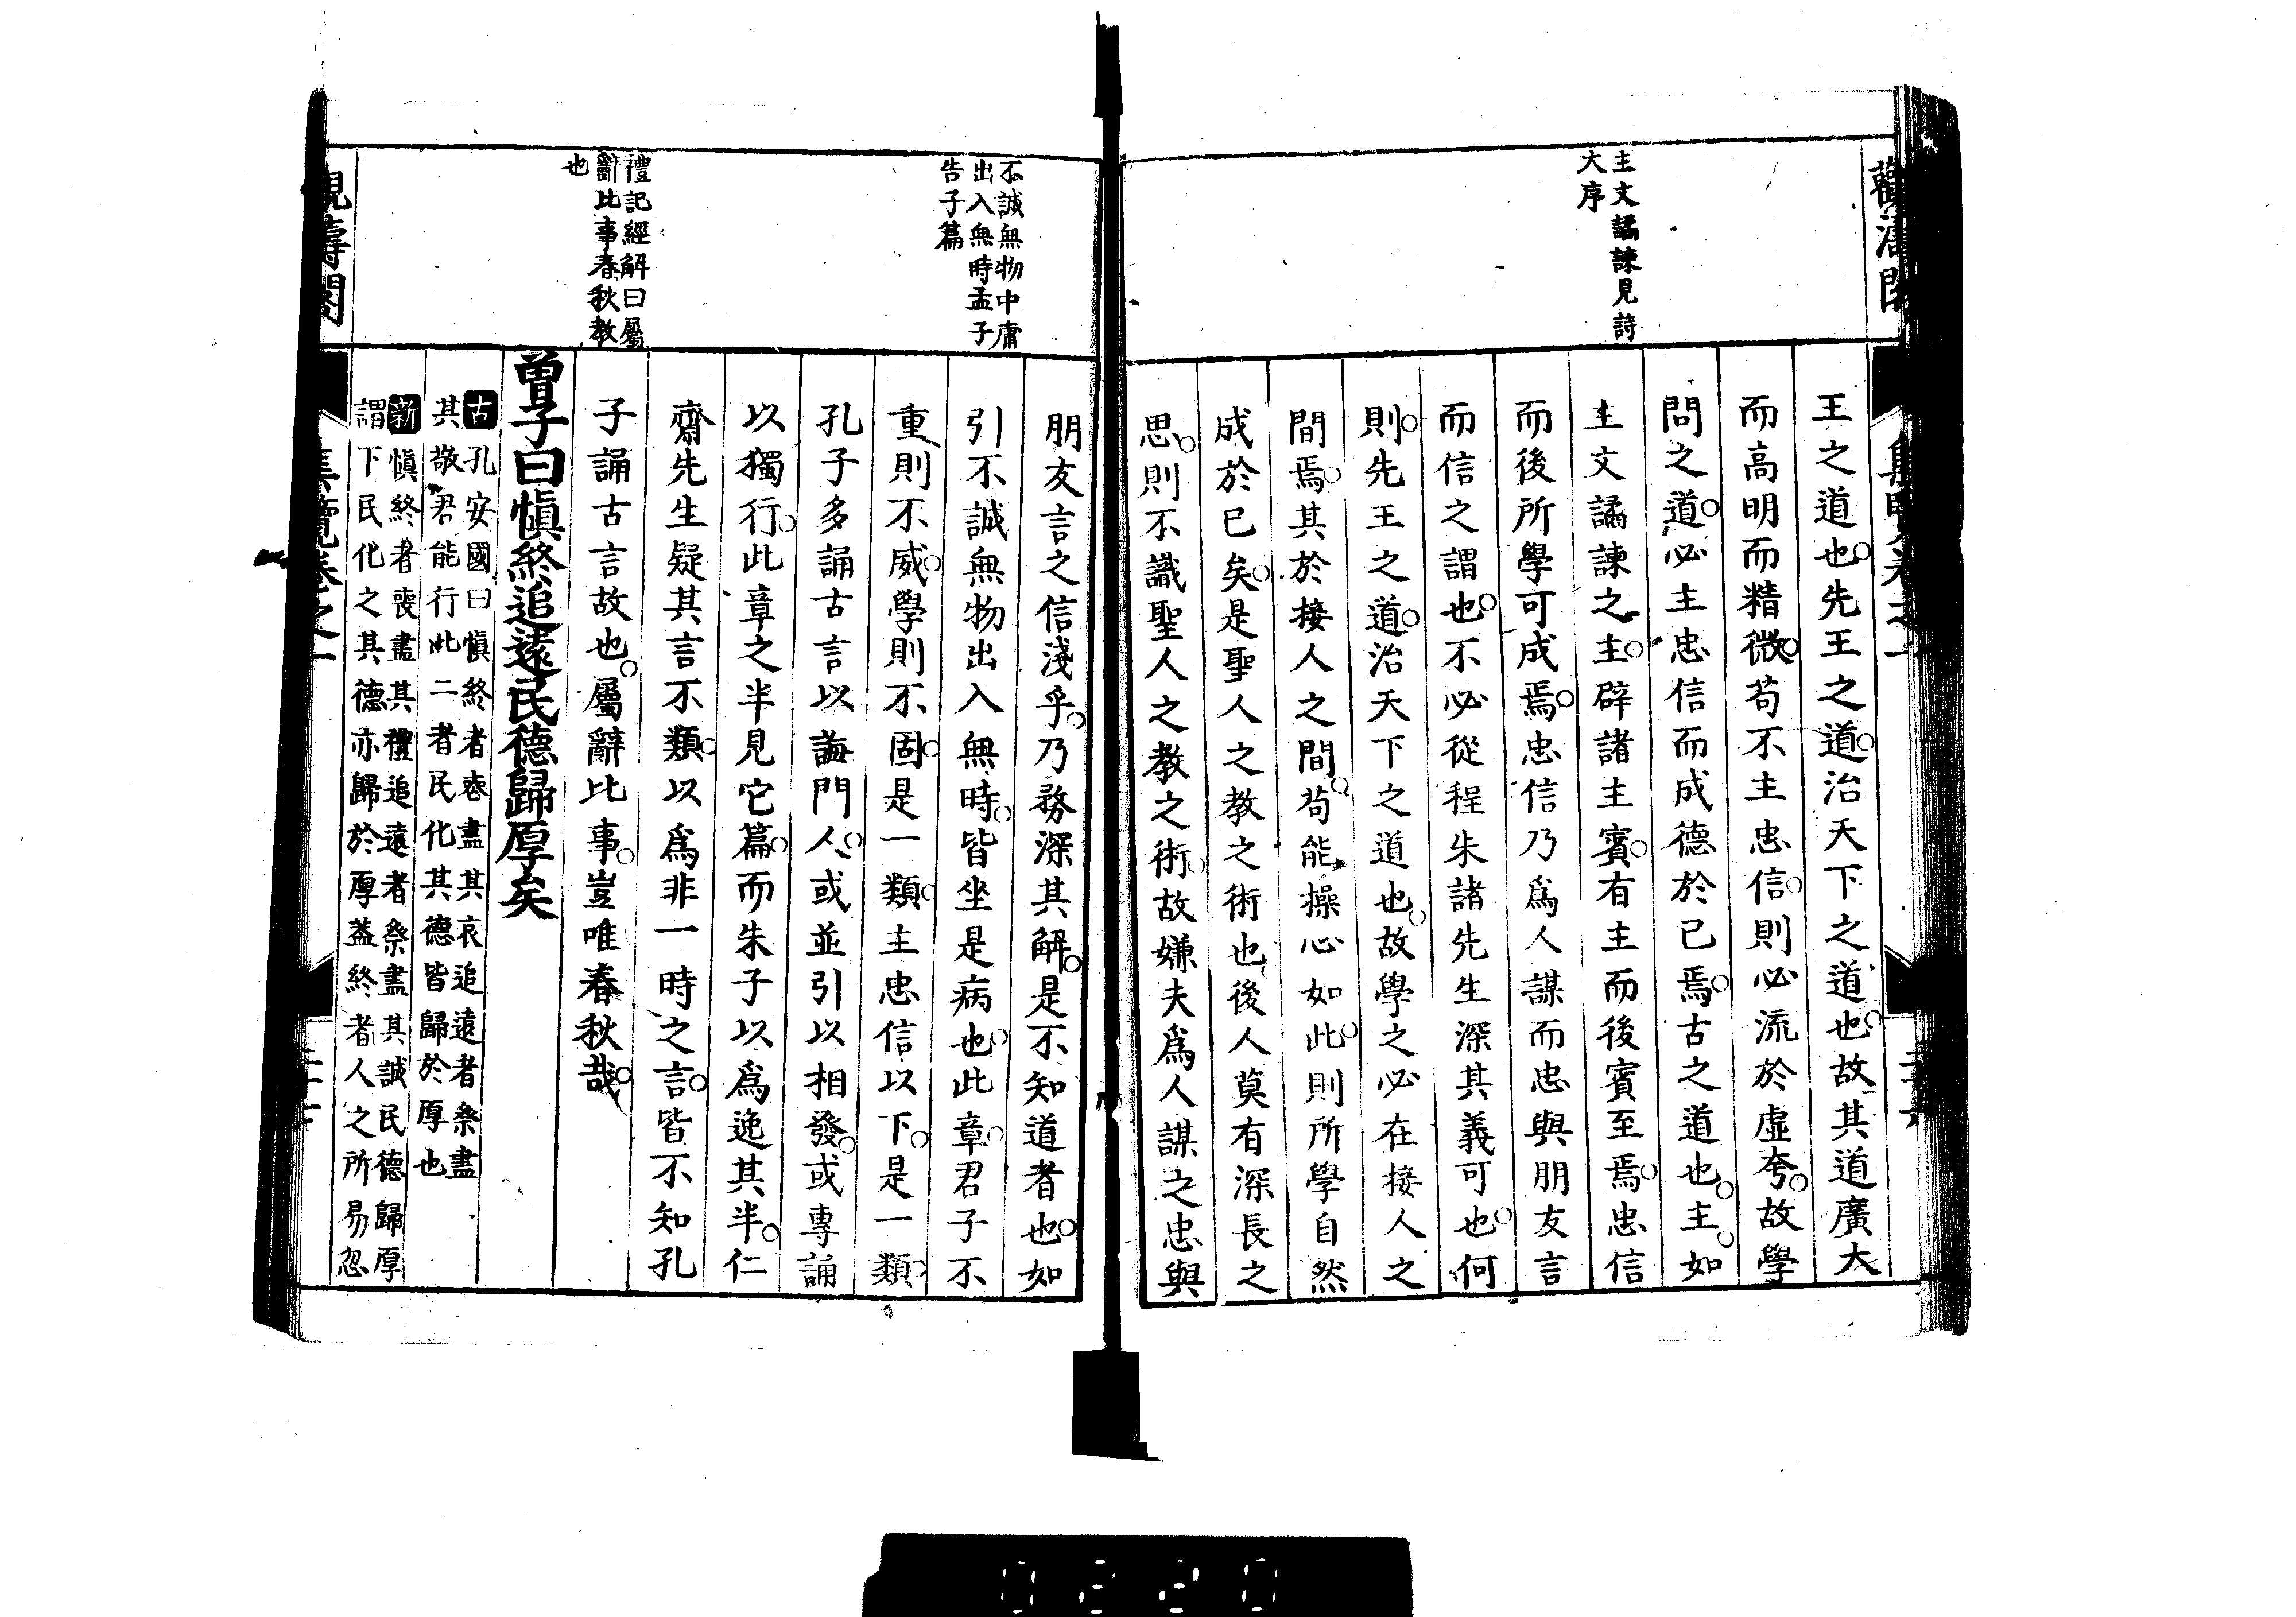 主文譎諫見詩
大序
王之道也先王之道治天下之道也故其道廣大
而高明而精微苟不主忠信則必流於虛夸故學
問之道必主忠信而成德於已焉古之道也主如
主文譎諫之主辟諸主賓有主而後賓至焉忠信
而後所學可成焉忠信乃爲人謀而忠與朋友言
而信之謂也不必從程朱諸先生深其義可也何
則先王之道治天下之道也故學之必在接人之
間焉其於接人之間苟能操心如此則所學自然
成於已矣是聖人之教之術也後人莫有深長之
思則不識聖人之教之術故嫌夫爲人謀之忠與
不誠無物中庸
出入無時孟子
告子篇
禮記經解曰屬
辭比事春秋教
也
朋友言之信淺乎乃務深其解是不知道者也如
引不誠無物出入無時皆坐是病也此章君子不
重則不威學則不固是一類主忠信以下是一類
孔子多誦古言以誨門人或並引以相發或專誦
以獨行此章之半見它篇而朱子以爲逸其半仁
齋先生疑其言不類以爲非一時之言皆不知孔
子誦古言故也屬辭比事豈唯春秋哉
曾子曰愼終追遠民德歸厚矣
古孔安國曰愼終者喪盡其哀追遠者祭盡
其敬君能行此二者民化其德皆歸於厚也
新愼終者喪盡其禮追遠者祭盡其誠民德歸厚
謂下民化之其德亦歸於厚蓋終者人之所易忽
0220